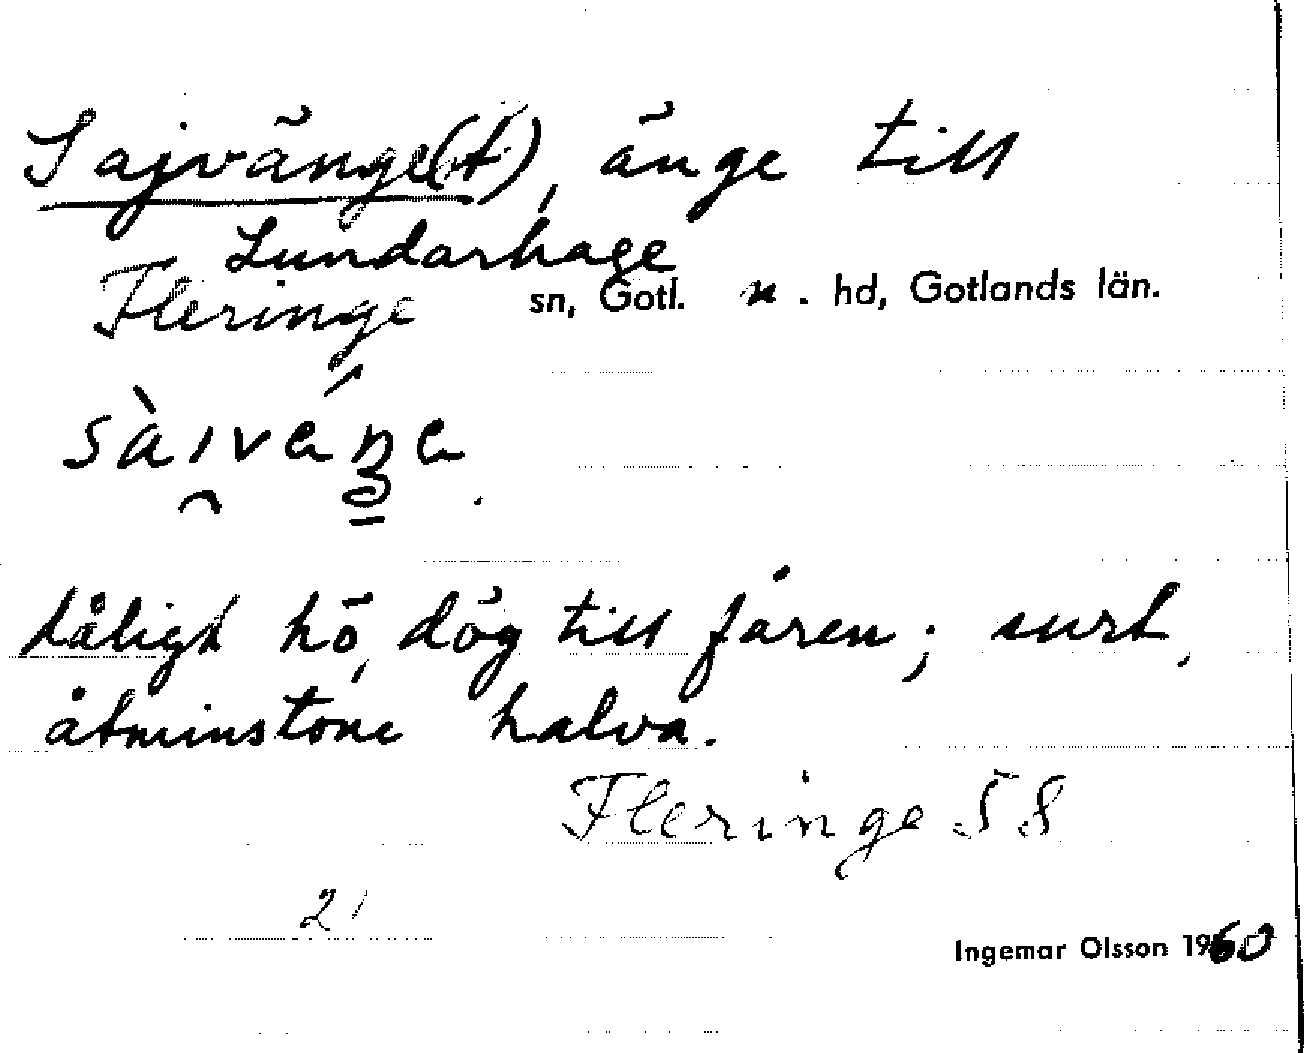 Sajvänge(t), änge till
Lundarhage
Fleringe sn, Gotl. n. hd, Gotlands län.
dåligt hö, dög till fåren; surt,
åtminstone halva.
Fleringe 58
21
Ingemar Olsson 1960